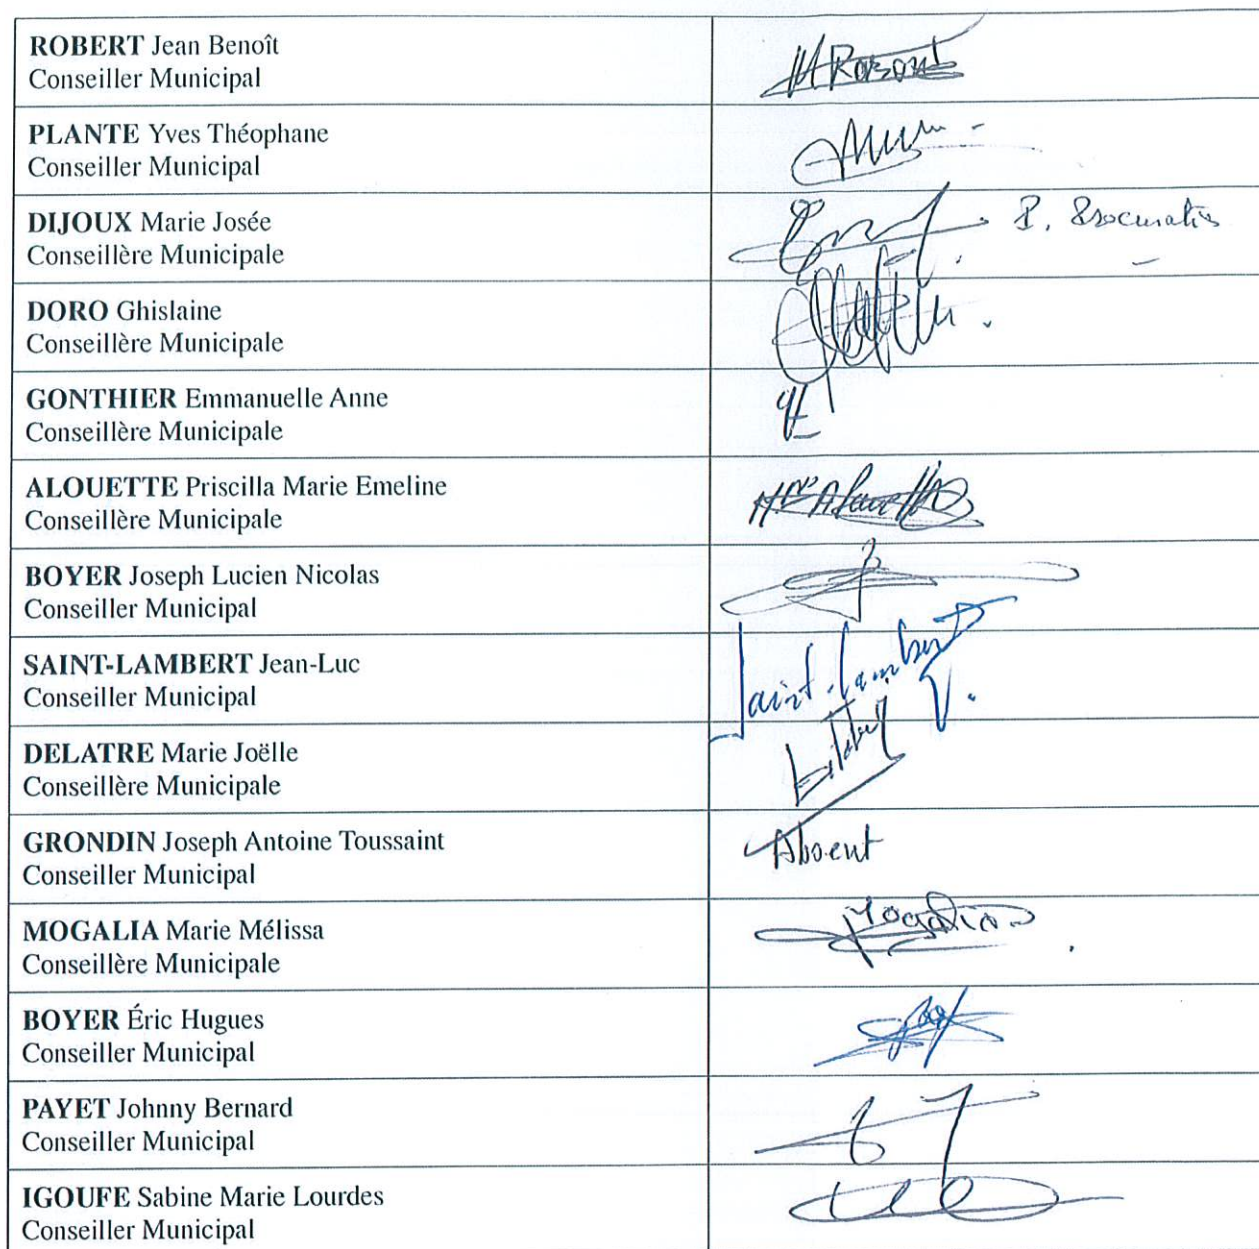 ROBERT Jean Benoît
Conseiller Municipal
PLANTE Yves Théophane
Conseiller Municipal
DIJOUX Marie Josée
Conseillère Municipale
P. Procuration
DORO Ghislaine
Conseillère Municipale
GONTHIER Emmanuelle Anne
Conseillère Municipale
ALOUETTE Priscilla Marie Emeline
Conseillère Municipale
BOYER Joseph Lucien Nicolas
Conseiller Municipal
SAINT-LAMBERT Jean-Luc
Conseiller Municipal
Saint-Lambert
DELATRE Marie Joëlle
Conseillère Municipale
GRONDIN Joseph Antoine Toussaint
Conseiller Municipal
Absent
MOGALIA Marie Mélissa
Conseillère Municipale
Mogalia
BOYER Éric Hugues
Conseiller Municipal
PAYET Johnny Bernard
Conseiller Municipal
IGOUFE Sabine Marie Lourdes
Conseiller Municipal